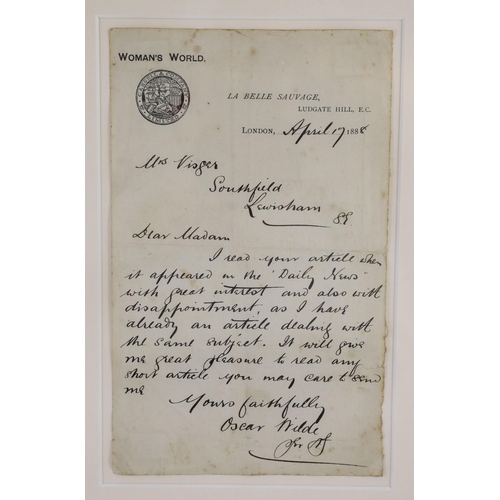 WOMAN'S WORLD.
LA BELLE SAUVAGE,
LUDGATE HILL, E.C.
LONDON, April 17 1888
Mrs Visger
Southfield
Lewisham
SE
Dear Madam
I read your article when
it appeared in the "Daily News"
with great interest and also with
disappointment, as I have
already an article dealing with
the same subject. It will give
me great pleasure to read any
short article you may care to send
me
Yours faithfully
Oscar Wilde